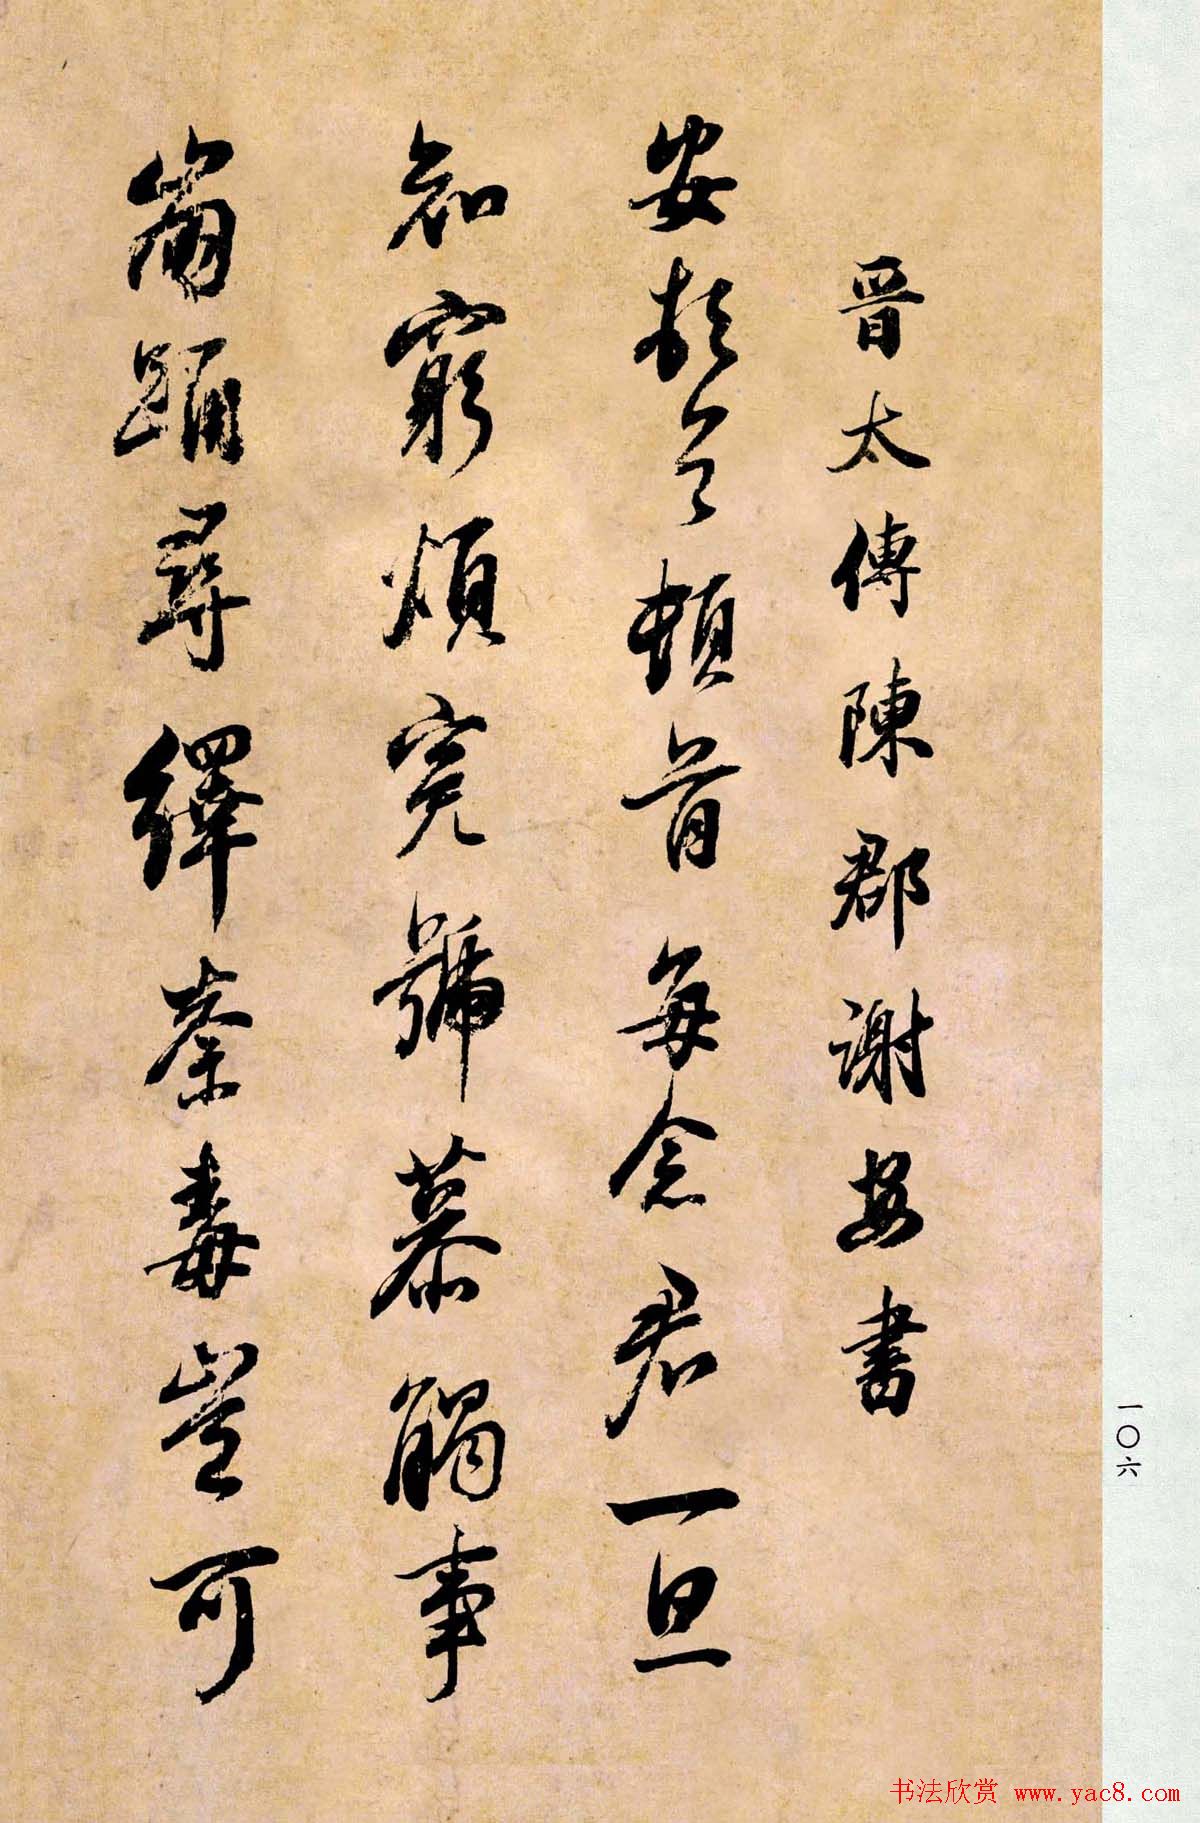 晉太傅陳郡謝安書
安頓首頓首每念君一旦
知窮煩冤號慕觸事
崩踊尋繹荼毒豈可
一〇六
书法欣赏 www.yac8.com